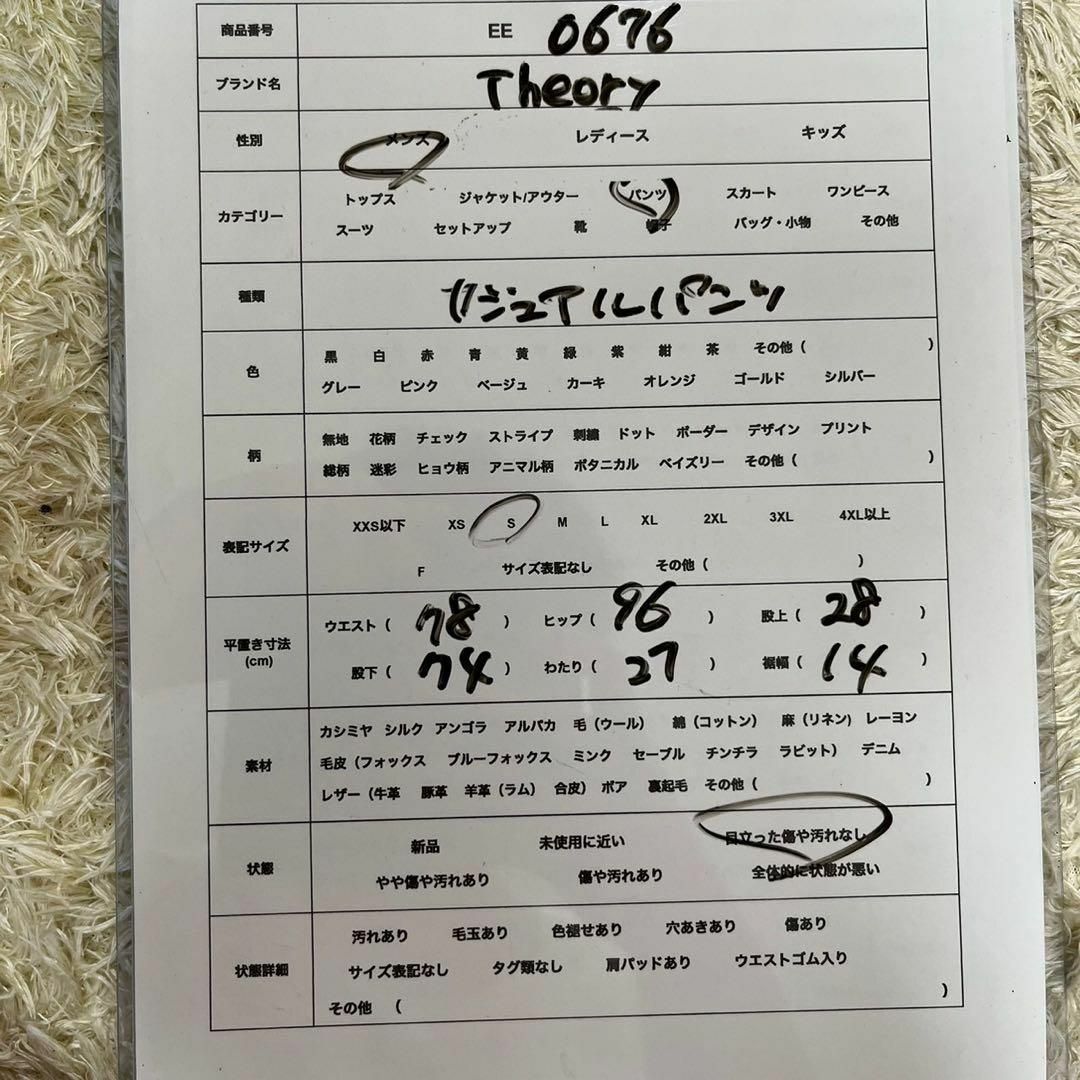 商品番号 EE 0676
ブランド名 Theory
性別 メンズ レディース キッズ
カテゴリー
トップス ジャケット/アウター パンツ スカート ワンピース
スーツ セットアップ 靴 帽子 バッグ・小物 その他
種類 カジュアルパンツ
色
黒 白 赤 青 黄 緑 紫 紺 茶 その他 ( )
グレー ピンク ベージュ カーキ オレンジ ゴールド シルバー
柄
無地 花柄 チェック ストライプ 刺繍 ドット ボーダー デザイン プリント
総柄 迷彩 ヒョウ柄 アニマル柄 ボタニカル ペイズリー その他 ( )
表記サイズ
XXS以下 XS S M L XL 2XL 3XL 4XL以上
F サイズ表記なし その他 ( )
平置き寸法
(cm)
ウエスト ( 78 ) ヒップ ( 96 ) 股上 ( 28 )
股下 ( 74 ) わたり ( 27 ) 裾幅 ( 14 )
素材
カシミヤ シルク アンゴラ アルパカ 毛（ウール） 綿（コットン） 麻（リネン） レーヨン
毛皮（フォックス ブルーフォックス ミンク セーブル チンチラ ラビット） デニム
レザー（牛革 豚革 羊革（ラム） 合皮） ボア 裏起毛 その他 ( )
状態
新品 未使用に近い 目立った傷や汚れなし
やや傷や汚れあり 傷や汚れあり 全体的に状態が悪い
状態詳細
汚れあり 毛玉あり 色褪せあり 穴あきあり 傷あり
サイズ表記なし タグ類なし 肩パッドあり ウエストゴム入り
その他 ( )